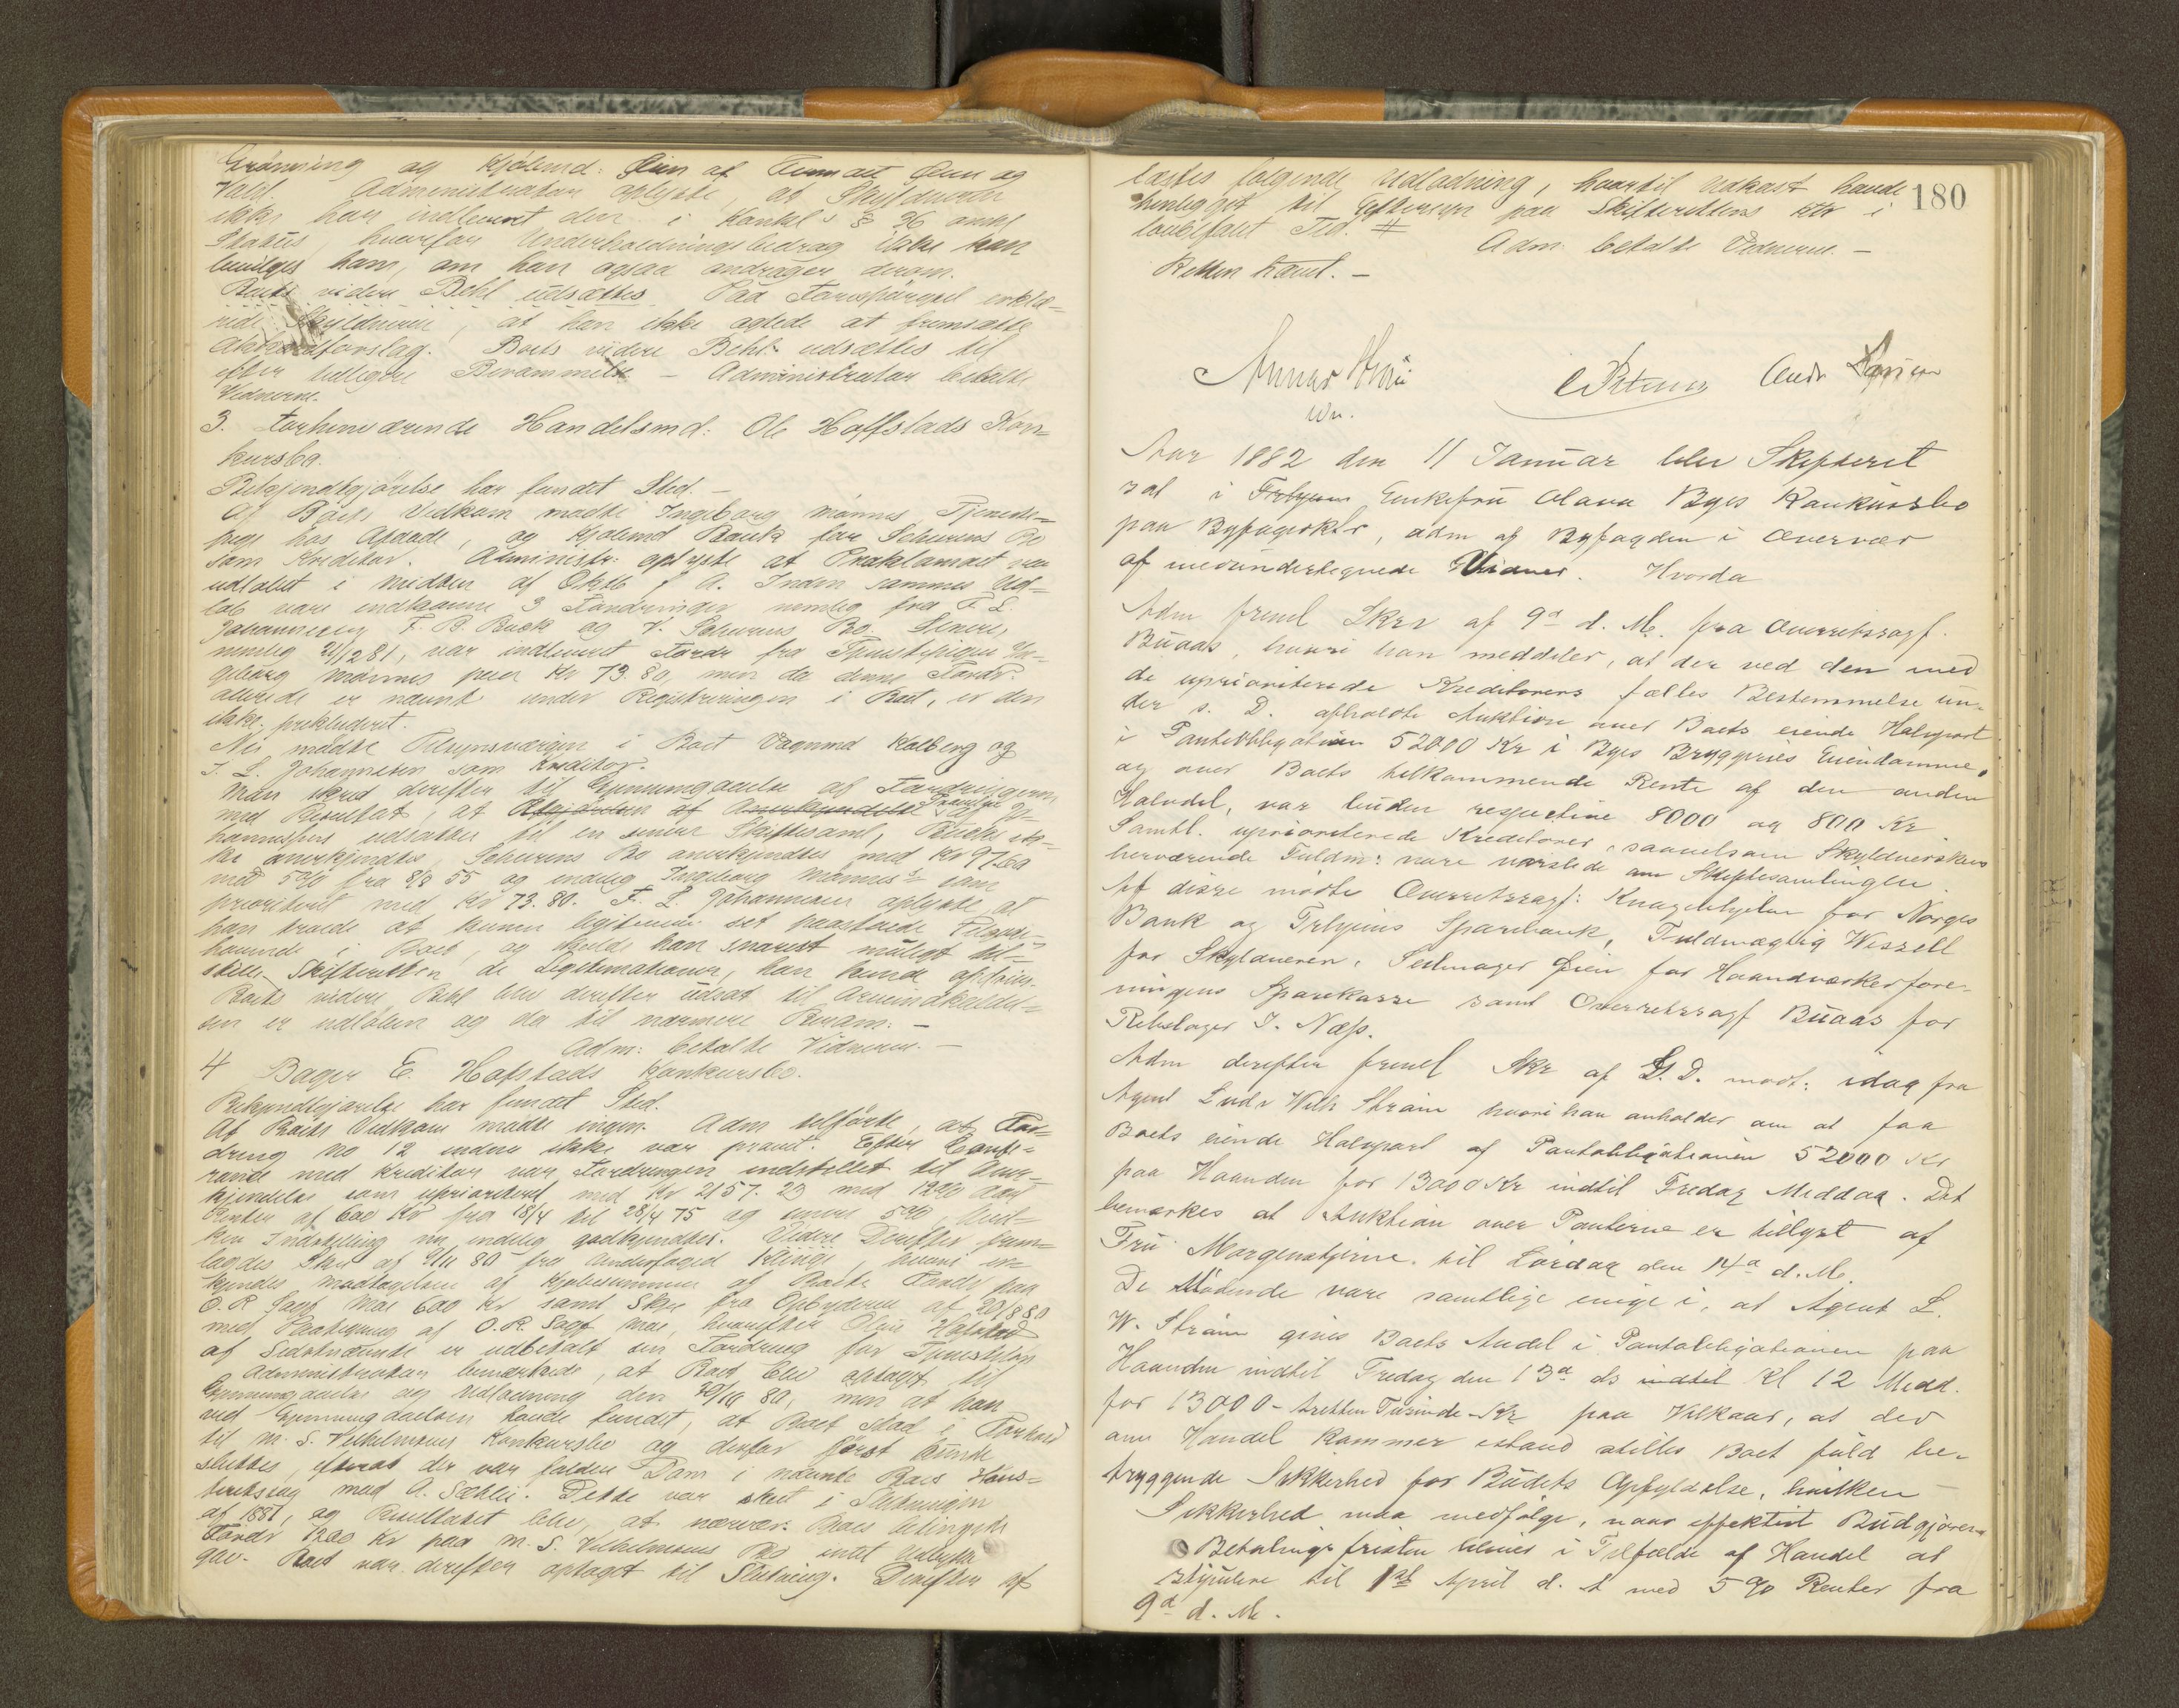 Grønning og Kjøbmd:
Vald. Administrator oplyste, at Skyldneren
ikke har indleveret den i Konkl's § 26 omhl
Status, hvorfor Underholdningsbidrag ikke kan
bevilges ham, om han ogsaa andrager derom.
Boets videre Behl udsættes. Paa Forespørgsel erklæ-
rede Skyldneren, at han ikke agtede at fremsætte
Akkordforslag. Boets videre Behl: udsættes til
efter tidligere Berammelse - Administrator betalte
Vidnerne.
3. Forhenværende Handelsmd: Ole Hoffstads Kon-
kursbo.
Bekjendtgjörelse har fundet Sted. -
Af Boets Vedkom mødte Ingeborg Mönnes Tjeneste-
pige hos Afdøde, og Kjøbmd Bauck for Schwens Bo
som Kreditor. Administr: oplyste at Proklamaet var
udløbet i Midten af Oktb f. A. Inden sammes Ud-
løb vare indkomne 3 Fordringer nemlig fra F. L.
Johannesen F. B. Buck og V. Schwens Bo. Senere,
nemlig 21/12 81, var indleveret Fordr fra Tjenestepigen In-
geborg Mönnes paa Kr 73.80, men da denne Fordr.
allerede er nævnt under Registreringen i Boet, er den
ikke prekluderet.
Nu mødte Tilsynsværgen i Boet Vognmd Kolberg og
F. L. Johannesen som Kreditor.
Man skred derefter til Gjennemgaaelse af Fordringerne
med Resultat, at Afgjörelsen af Anerkjendelse af Jo-
hannesens udsættes til en senere Skiftesaml, Bucks ik-
ke anerkjendtes, Schwens Bo anerkjendtes med Kr 97.69
med 5% fra 8/8 55 og endelig Ingeborg Mönnes's som
prioriteret med Kr 73.80. F. L. Johannesen oplyste at
han troede at kunne legitimere det paastaaede Tilgode-
havende i Boet, og skulde han snarest muligt til-
stille Skifteretten de Legitimationer, han kunde opdrive.
Boets videre Behl blev derefter udsat til
sen er udløben og da til nærmere Beram: -
Adm: betalte Vidnerne. -
4 Bager E. Hofstads Konkursbo.
Bekjendtgjørelse har fundet Sted.
Af Boets Vedkom mødte ingen. Adm tilførte, at For-
dring No 12 endnu ikke var prøvet. Efter Confe-
rance med Kreditor var Fordringen indstillet til Aner-
kjendelse som uprioriteret med Kr 2157.23 med 12% aarl
Renter af 600 Kr fra 18/4 til 28/4 75 og senere 5%, hvil-
ken Indstilling nu endelig godkjendtes. Videre Derefter frem-
lagdes Skr af 9/11 80 fra Underfoged Klinge, hvori er-
kjendes Modtagelsen af Kjøbesummen af Boets Fordr paa
O.R Sagf Moe 600 Kr samt Skr fra Opbyderen af 20/8 80
med Paategning af O.R. Sagf Moe, hvorefter Oline Hofstad
af Sidstnævnte er udbetalt sin Fordring for Tjenesteløn
Administrator bemærkede, at Boet blev optaget til
Gjennemgaaelse og Udlodning den 20/10 80, men at han
ved Gjennemgaaelsen havde fundet, at Boet stod i Forhold
til M. S. Vilhelmsens Konkursbo og derfor först kunde
sluttes, efterat der var falden Dom i nævnte Boes Høie-
steretssag med A. Sæhlie. Dette var skeet i Slutningen
af 1881, og Resultatet blev, at nærvær: Boes betingede
Fordr 1200 Kr paa M. S. Vilhelmsens Bo intet Udbytte
gav. Boet var derefter optaget til Slutning. Derefter af-
180
læstes følgende Udlodning, hvortil Udkast havde
henligget til Eftersyn paa Skifterettens Ktr i
lovbefalet Tid. #
Adm: betalte Vidnerne. -
Retten hævet. -
C Petersen
Aar 1882 den 11 Januar blev Skifteret
sat i Enkefru Olava Byes Konkursbo
paa Byfogedktr, adm af Byfogden i Overvær
af medundertegnede Vidner. Hvorda
Adm freml Skr af 9d d. M. fra Overretssagf.
Buaas, hvori han meddeler, at der ved den med
de uprioriterede Kreditorers fælles Bestemmelse un-
der s. D. afholdte Auktion over Boets eiende Halvpart
i Pantobligation 52000 Kr i Byes Bryggeries Eiendomme,
og over Boets tilkommende Rente af den anden
Halvdel, var buden respective 8000 og 800 Kr
Samtl. uprioriterede Kreditorer, saavelsom Skyldnerskens
herværende Fuldm: vare varslede om Skiftesamlingen.
Af disse mødte Overretssagf: Knagenhjelm for Norges
Bank og Trhjems Sparebank, Fuldmægtig Wessell
for Skyldneren, Seilmager Øien for Haandværkerfore-
ningens Sparekasse samt Overretssagf Buaas for
Rebslager J. Næss.
Adm derefter freml Skr af G. D. modt: idag fra
Agent Ludv Wilh Strøm hvori han anholder om at faa
Boets eiende Halvpart af Pantobligationen 52000 Kr
paa Haanden for 13000 Kr indtil Fredag Middag. Det
bemærkes at Auktion over Panterne er tillyst af
Fru Morgenstjerne til Lördag den 14d d. M.
De Mødende vare samtlige enige i, at Agent L.
W. Strøm gives Boets Andel i Pantobligationen paa
Haanden indtil Fredag den 13d ds indtil Kl 12 Midd.
for 13000 - tretten Tusinde - Kr paa Vilkaar, at der
om Handel kommer istand stilles Boet fuld be-
tryggende Sikkerhed for Budets Opfyldelse, hvilken
Sikkerhed maa medfølge, naar effektivt Bud gjøres
Betalingsfristen blives i Tilfælde af Handel at
stipulere til 1st April d. A med 5% Renter fra
9d d. M.